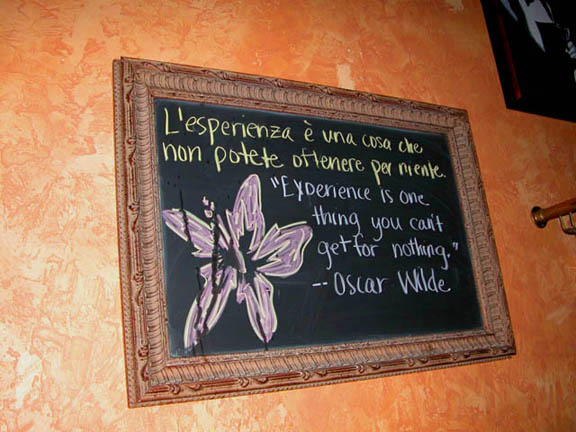 L'esperienza è una cosa che
non potete ottenere per niente.
"Experience is one
thing you can't
get for nothing."
-- Oscar Wilde